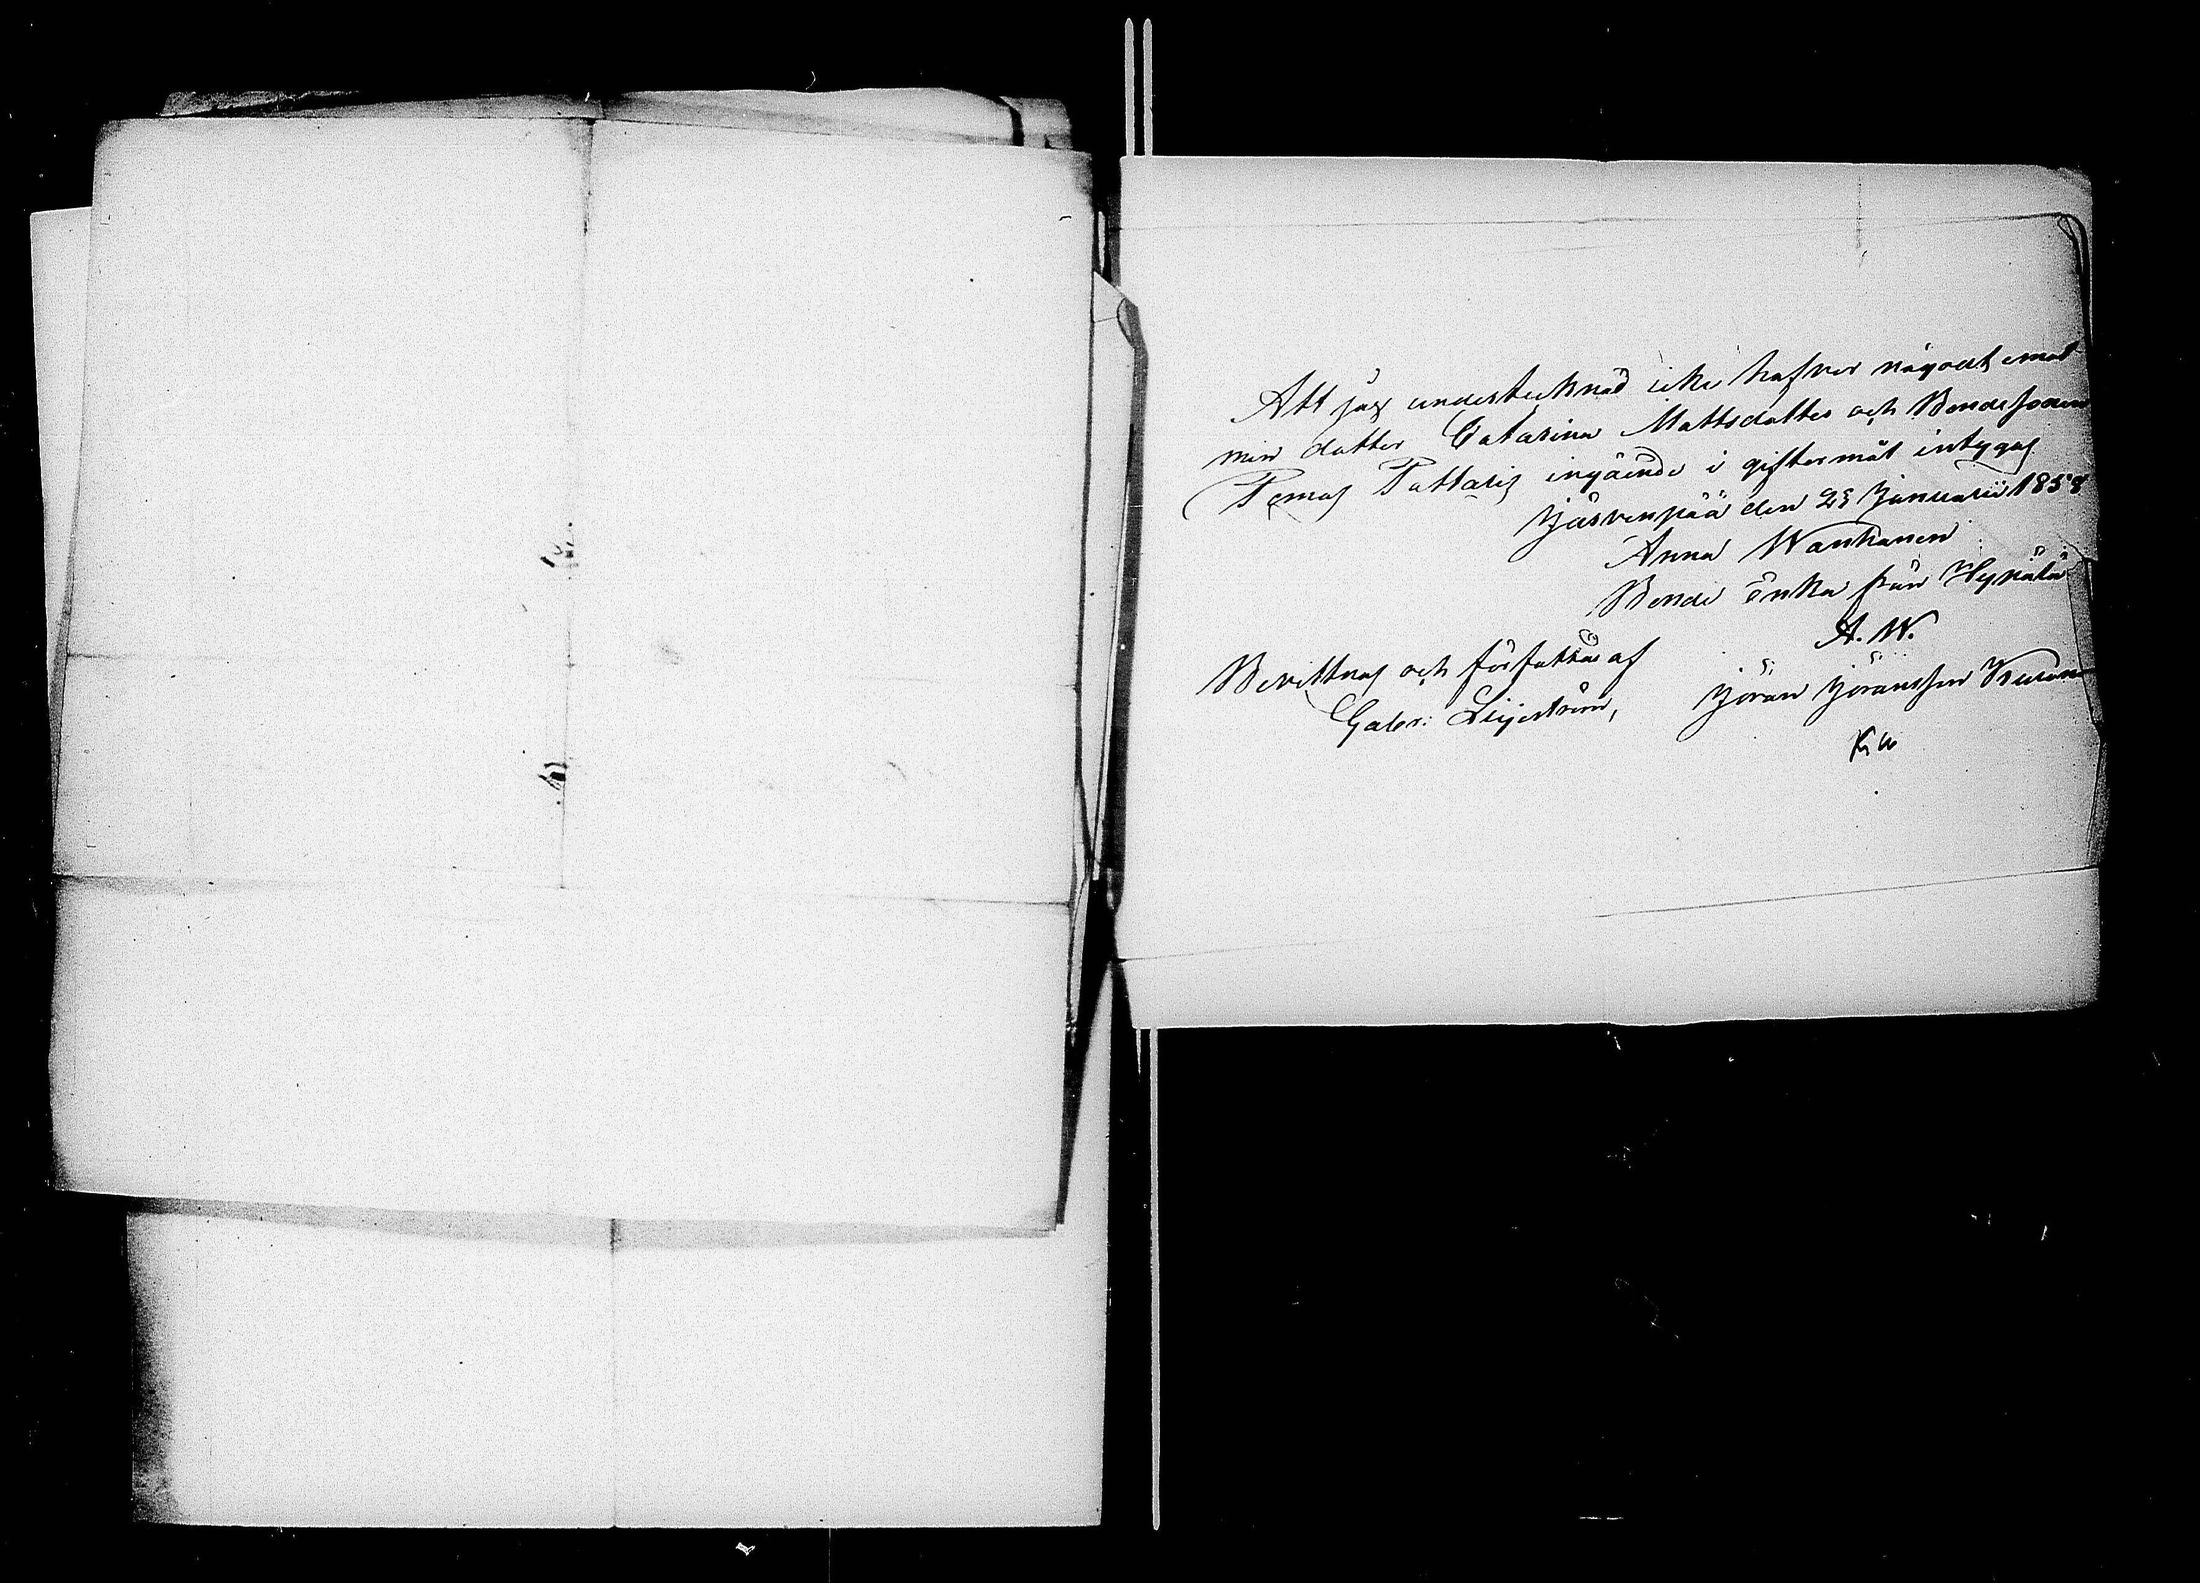 Att jag undertecknad icke hafver någodt emot
min dotter Catarina Mattsdotter och Bondesonen
Tomas Pattaris ingående i giftermål intygas
Järvenpää den 23 Januarii 1858
Anna Wanhanen
Bonde enka från Hynälä
A. W.
Berittnas och författas af
Gabr: Liljeström,
Jöran Jöransson